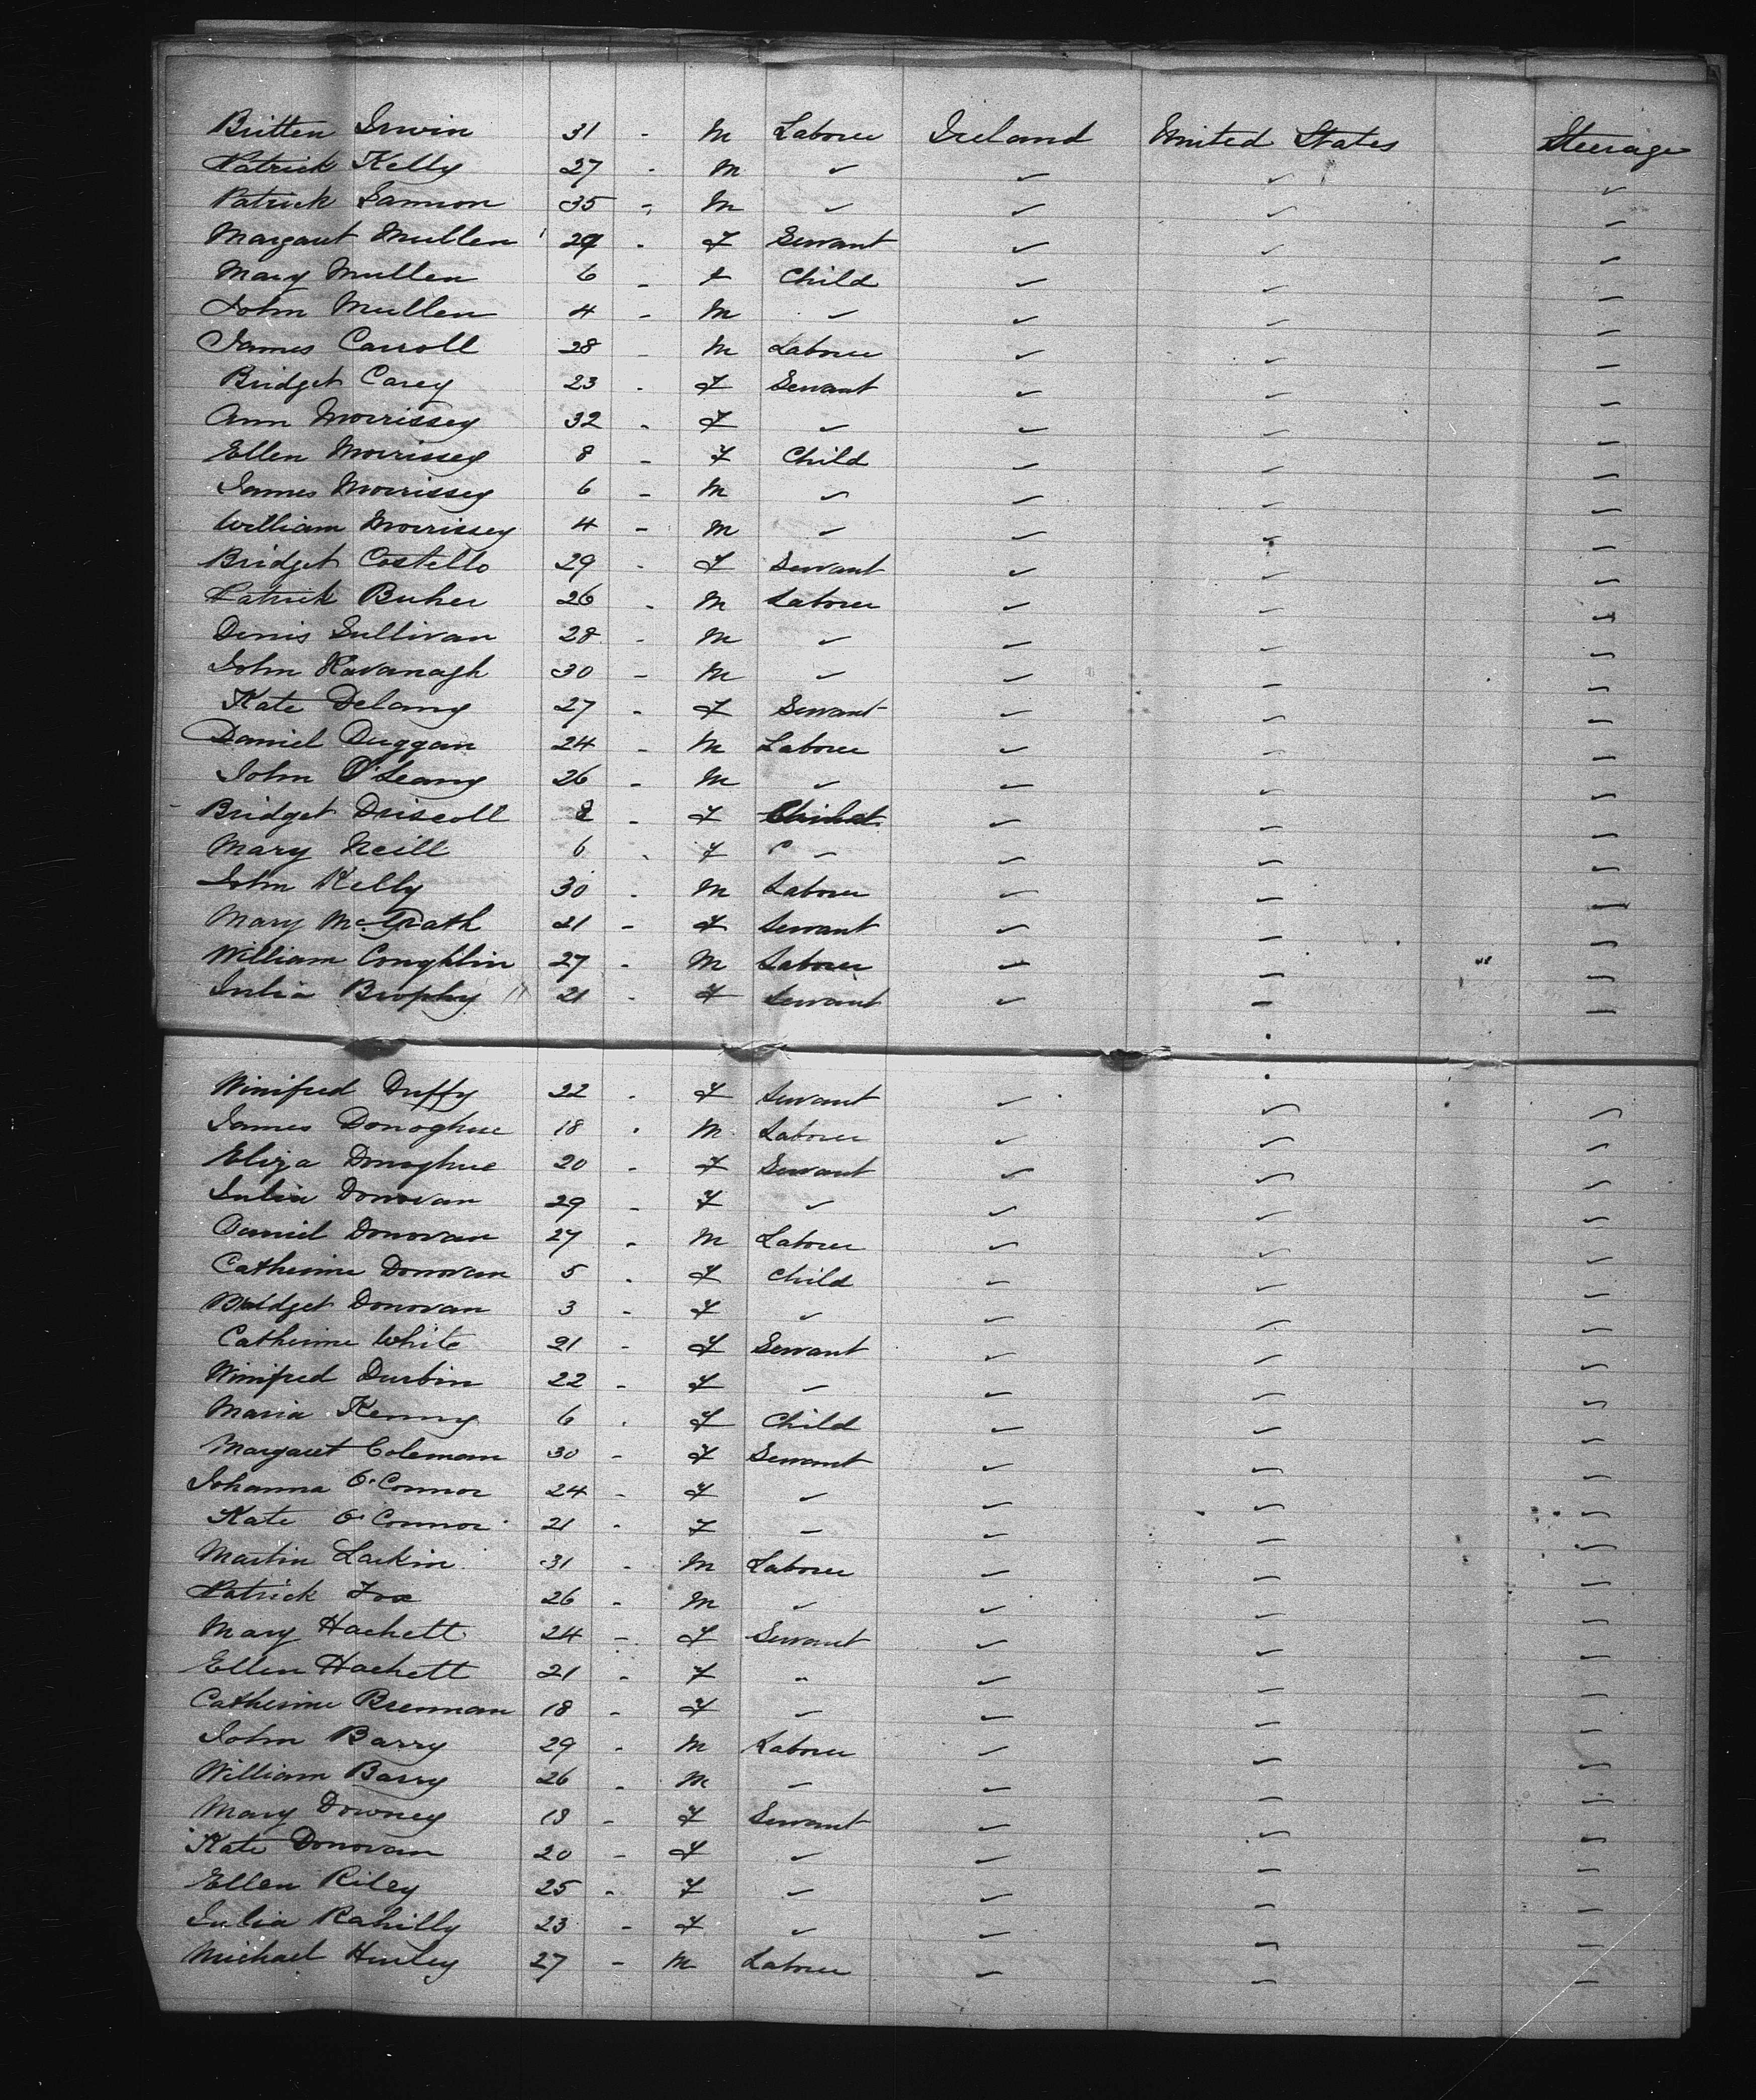 Britten Irwin 31 - M Laborer Ireland United States Steerage
Patrick Kelly 27 - M ✓ ✓ ✓ ✓
Patrick Lannon 35 - M ✓ ✓ ✓ ✓
Margaret Mullen 29 - F Servant ✓ ✓ ✓
Mary Mullen 6 - F Child ✓ ✓ ✓
John Mullen 4 - M ✓ ✓ ✓ ✓
James Carroll 28 - M Laborer ✓ ✓ ✓
Bridget Carey 23 - F Servant ✓ ✓ ✓
Ann Morrissey 32 - F ✓ ✓ ✓ ✓
Ellen Morrissey 8 - F Child ✓ ✓ ✓
James Morrissey 6 - M ✓ ✓ ✓ ✓
William Morrissey 4 - M ✓ ✓ ✓ ✓
Bridget Costello 29 - F Servant ✓ ✓ ✓
Patrick 26 - M Laborer ✓ ✓ ✓
Denis Sullivan 28 - M ✓ ✓ ✓ ✓
John Kavanagh 30 - M ✓ ✓ ✓ ✓
Kate Delany 27 - F Servant ✓ ✓ ✓
Daniel Duggan 24 - M Laborer ✓ ✓ ✓
John O'Leary 26 - M ✓ ✓ ✓ ✓
Bridget Driscoll 8 - F Child ✓ ✓ ✓
Mary Neill 6 - F ✓ ✓ ✓ ✓
John Kelly 30 - M Laborer ✓ ✓ ✓
Mary McGrath 21 - F Servant ✓ ✓ ✓
William Coughlin 27 - M Laborer ✓ ✓ ✓
Julia Brophy 21 - F Servant ✓ ✓ ✓
Winifred Duffy 22 - F Servant ✓ ✓ ✓
James Donoghue 18 - M Laborer ✓ ✓ ✓
Eliza Donoghue 20 - F Servant ✓ ✓ ✓
Julia Donovan 29 - F ✓ ✓ ✓ ✓
Daniel Donovan 27 - M Laborer ✓ ✓ ✓
Catherine Donovan 5 - F Child ✓ ✓ ✓
Bridget Donovan 3 - F ✓ ✓ ✓ ✓
Catherine White 21 - F Servant ✓ ✓ ✓
Winifred Durbin 22 - F ✓ ✓ ✓ ✓
Maria Kenny 6 - F Child ✓ ✓ ✓
Margaret Coleman 30 - F Servant ✓ ✓ ✓
Johanna O'Connor 24 - F ✓ ✓ ✓ ✓
Kate O'Connor 21 - F ✓ ✓ ✓ ✓
Martin Larkin 31 - M Laborer ✓ ✓ ✓
Patrick Fox 26 - M ✓ ✓ ✓ ✓
Mary Hackett 24 - F Servant ✓ ✓ ✓
Ellen Hackett 21 - F " ✓ ✓ ✓
Catherine Brennan 18 - F ✓ ✓ ✓ ✓
John Barry 29 - M Laborer ✓ ✓ ✓
William Barry 26 - M ✓ ✓ ✓ ✓
Mary Downey 18 - F Servant ✓ ✓ ✓
Kate Donovan 20 - F ✓ ✓ ✓ ✓
Ellen Riley 25 - F ✓ ✓ ✓ ✓
Julia Rahilly 23 - F ✓ ✓ ✓ ✓
Michael Hurley 27 - M Laborer ✓ ✓ ✓